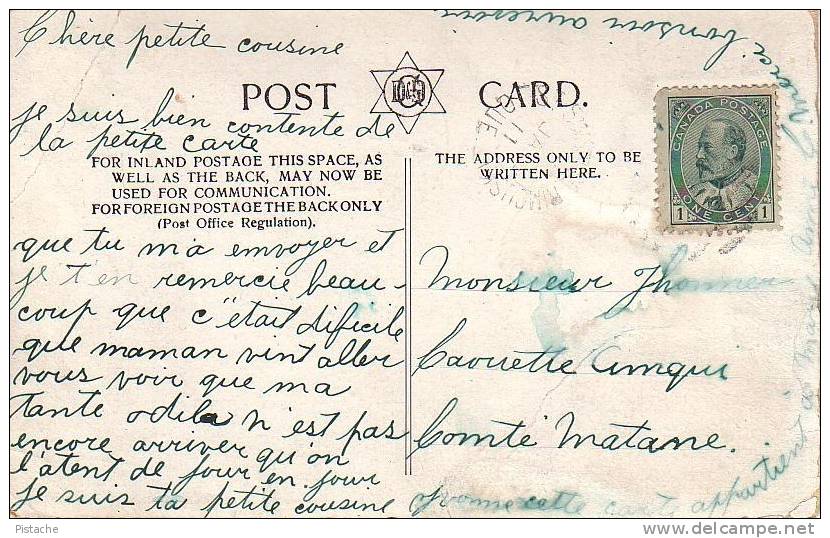 Chère petite cousine
POST CARD.
D&Q
je suis bien contente de
la petite carte
FOR INLAND POSTAGE THIS SPACE, AS
WELL AS THE BACK, MAY NOW BE
USED FOR COMMUNICATION.
FOR FOREIGN POSTAGE THE BACK ONLY
(Post Office Regulation).
que tu m'a envoyer et
je t'en remercie beau-
coup que c'était dificile
que maman vint aller
vous voir que ma
tante odila n'est pas
encore arriver qu'on
l'atent de jour en jour
je suis ta petite cousine
THE ADDRESS ONLY TO BE
WRITTEN HERE.
CANADA POSTAGE
1 ONE CENT 1
Monsieur Thommer
Caouette Amqui
Comté Matane.
cette carte appartient
a
merci bonsoir aurevoir
Pistache
delcampe.net